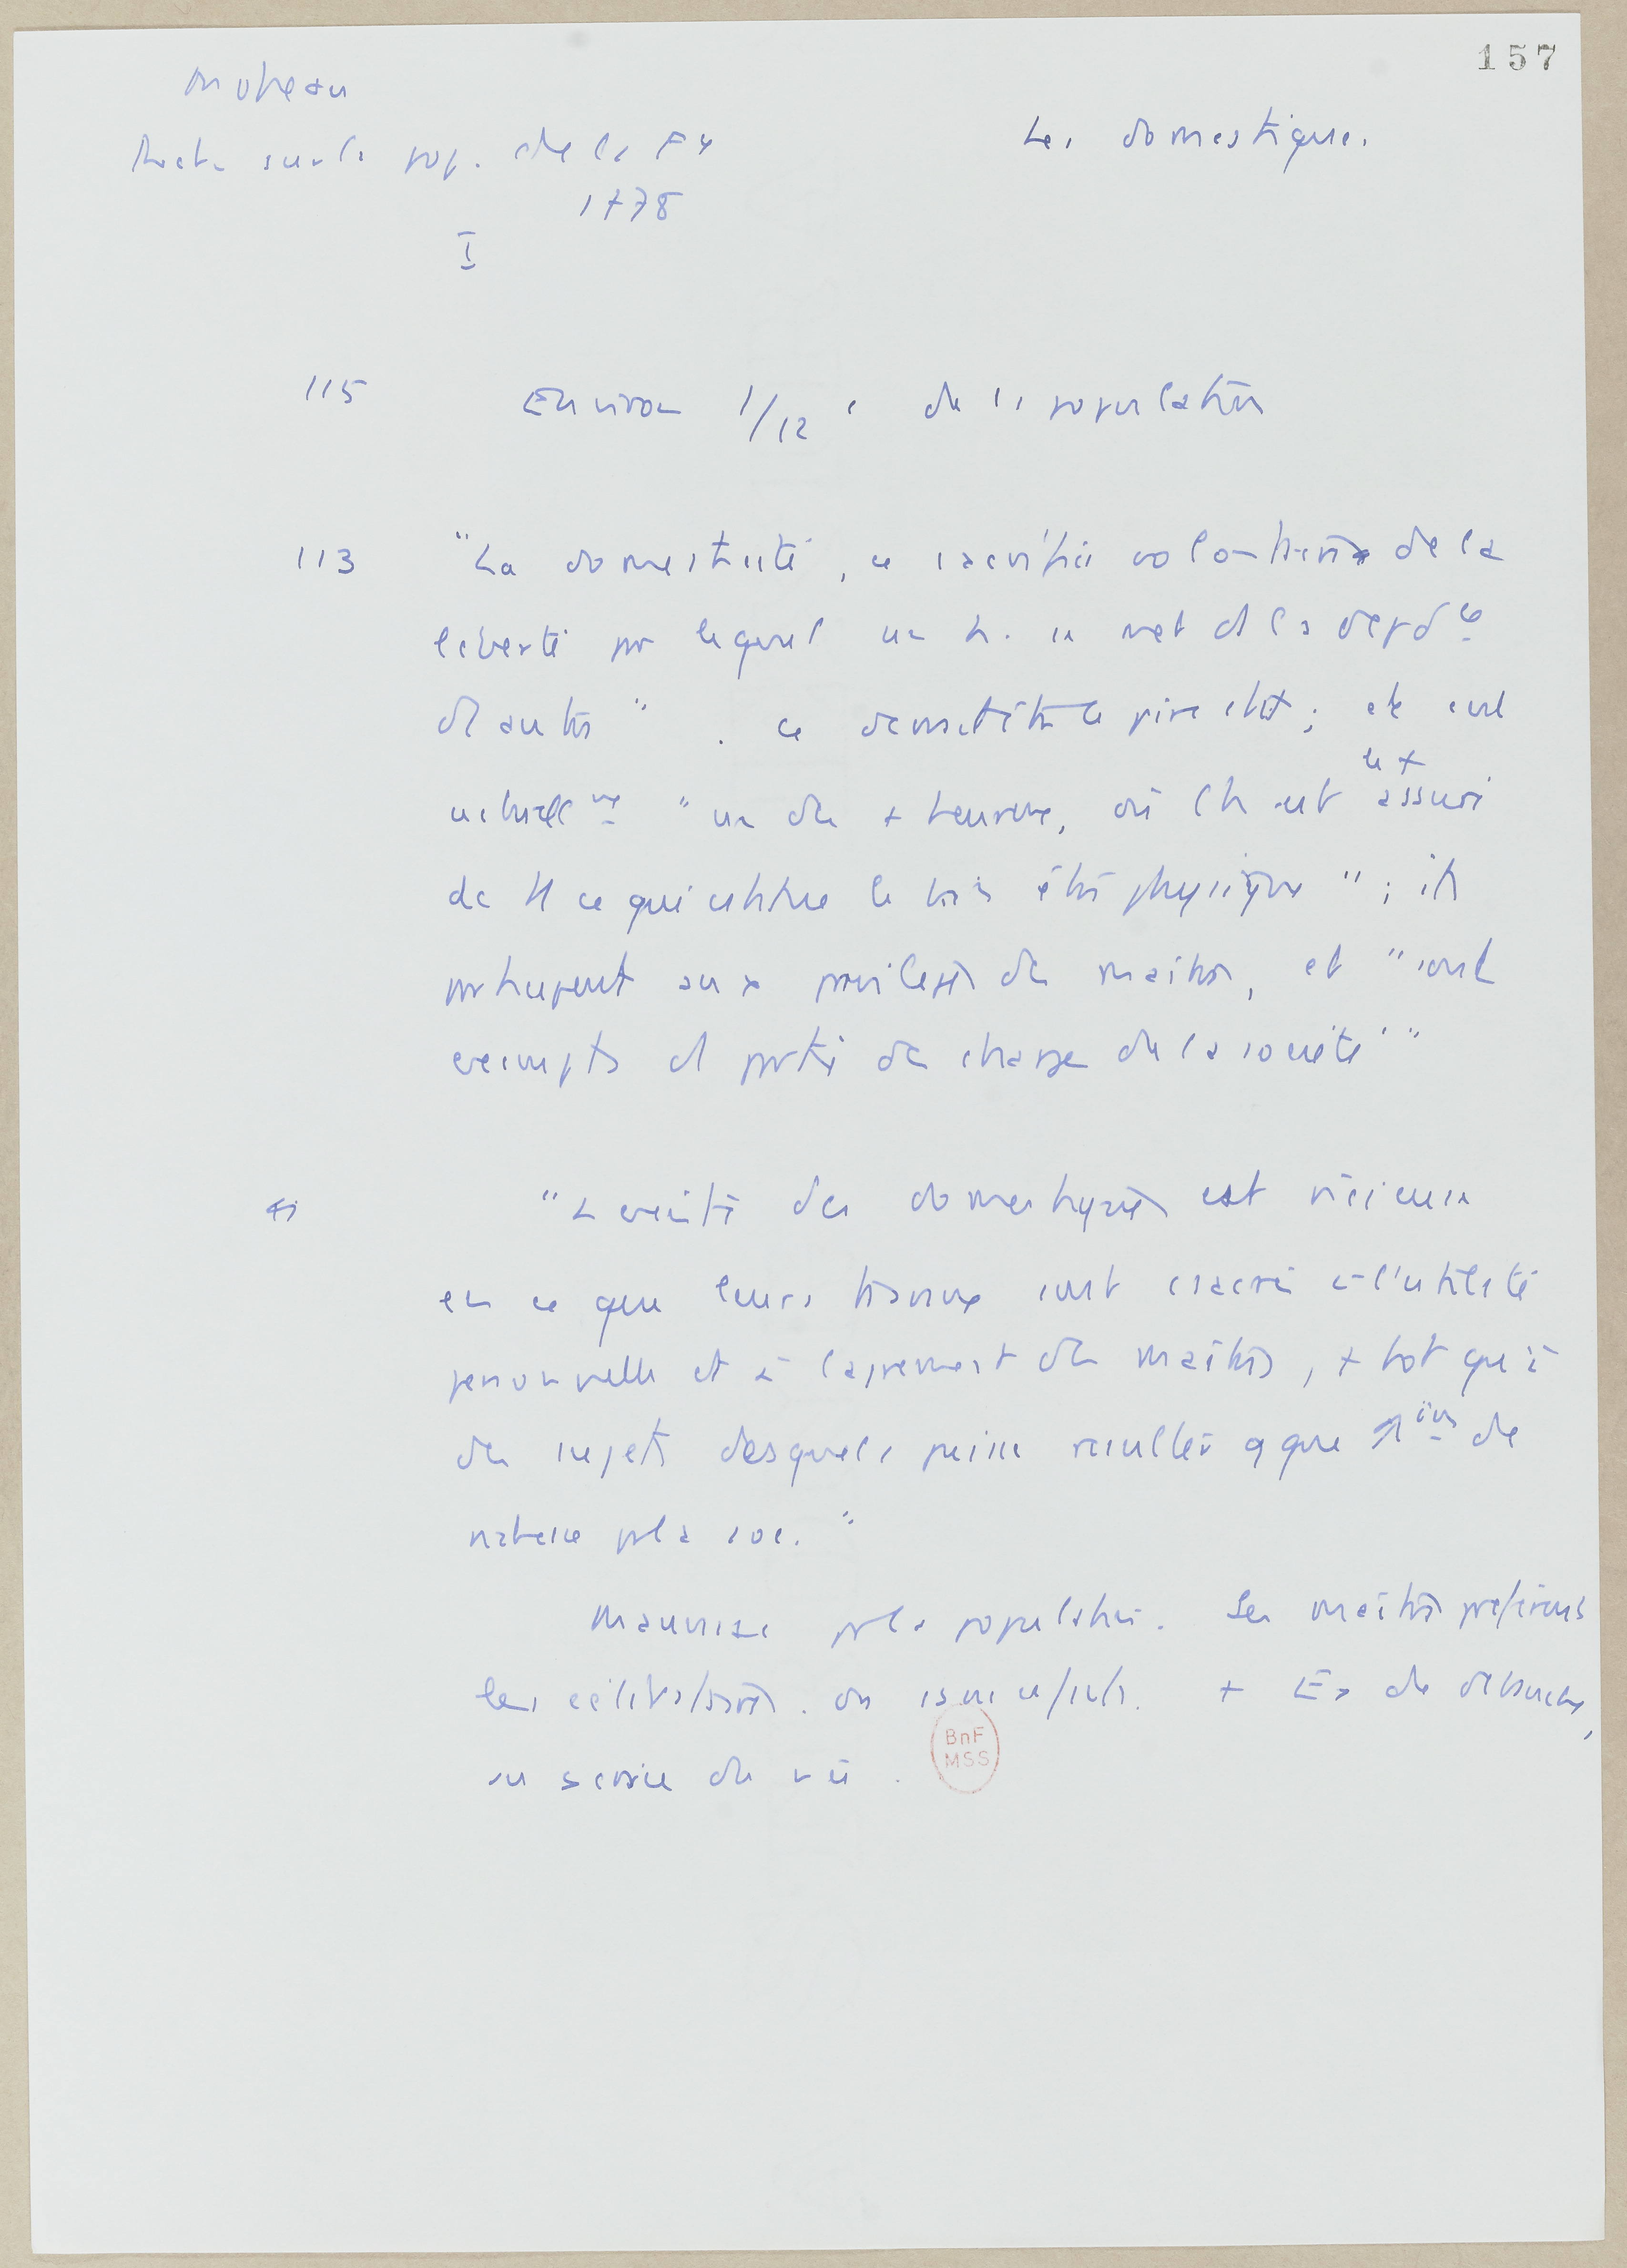 157
Moheau
Les domestiques.
Rech. sur la pop. de la Fr
1778
I
115 Environ 1/12e de la population
113 "La domesticité, ce sacrifice volontaire de la
liberté par lequel un h. se met ds la dépdce
d'autres". Ce devrait être le pire état; elle est
le +
actuellemt "un des + heureux, où l'h est assuré
de tt ce qui constitue le bien être physique"; ils
participent aux privilèges des maîtres, et "sont
exempts d'1 partie des charges de la société"
"L'activité des domestiques est vicieuse
en ce que leurs travaux sont csacrés à l'utilité
personnelle et à l'agrément des maîtres, + tôt qu'à
des sujets desquels puisse résulter qque de
richesse pr la soc."
Mauvais pr la population. Les maîtres préfèrent
les célibataires. On . + de débauche,
au service du roi.
BnF
MSS